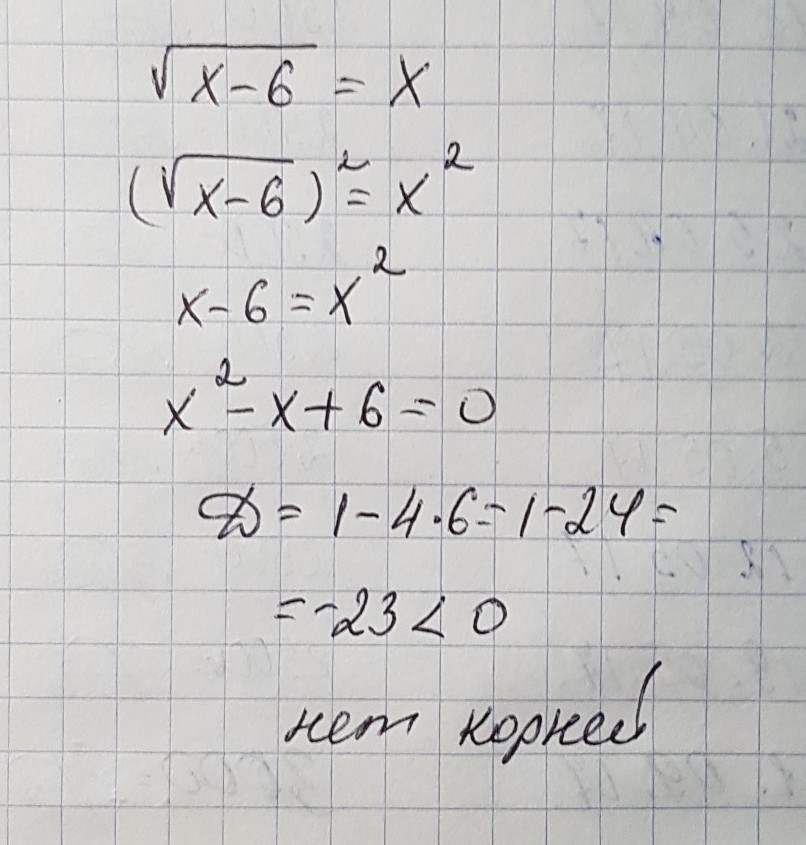 √(x-6) = x
(√(x-6))² = x²
x-6 = x²
x² - x + 6 = 0
D = 1 - 4·6 = 1 - 24 =
= -23 < 0
нет корней